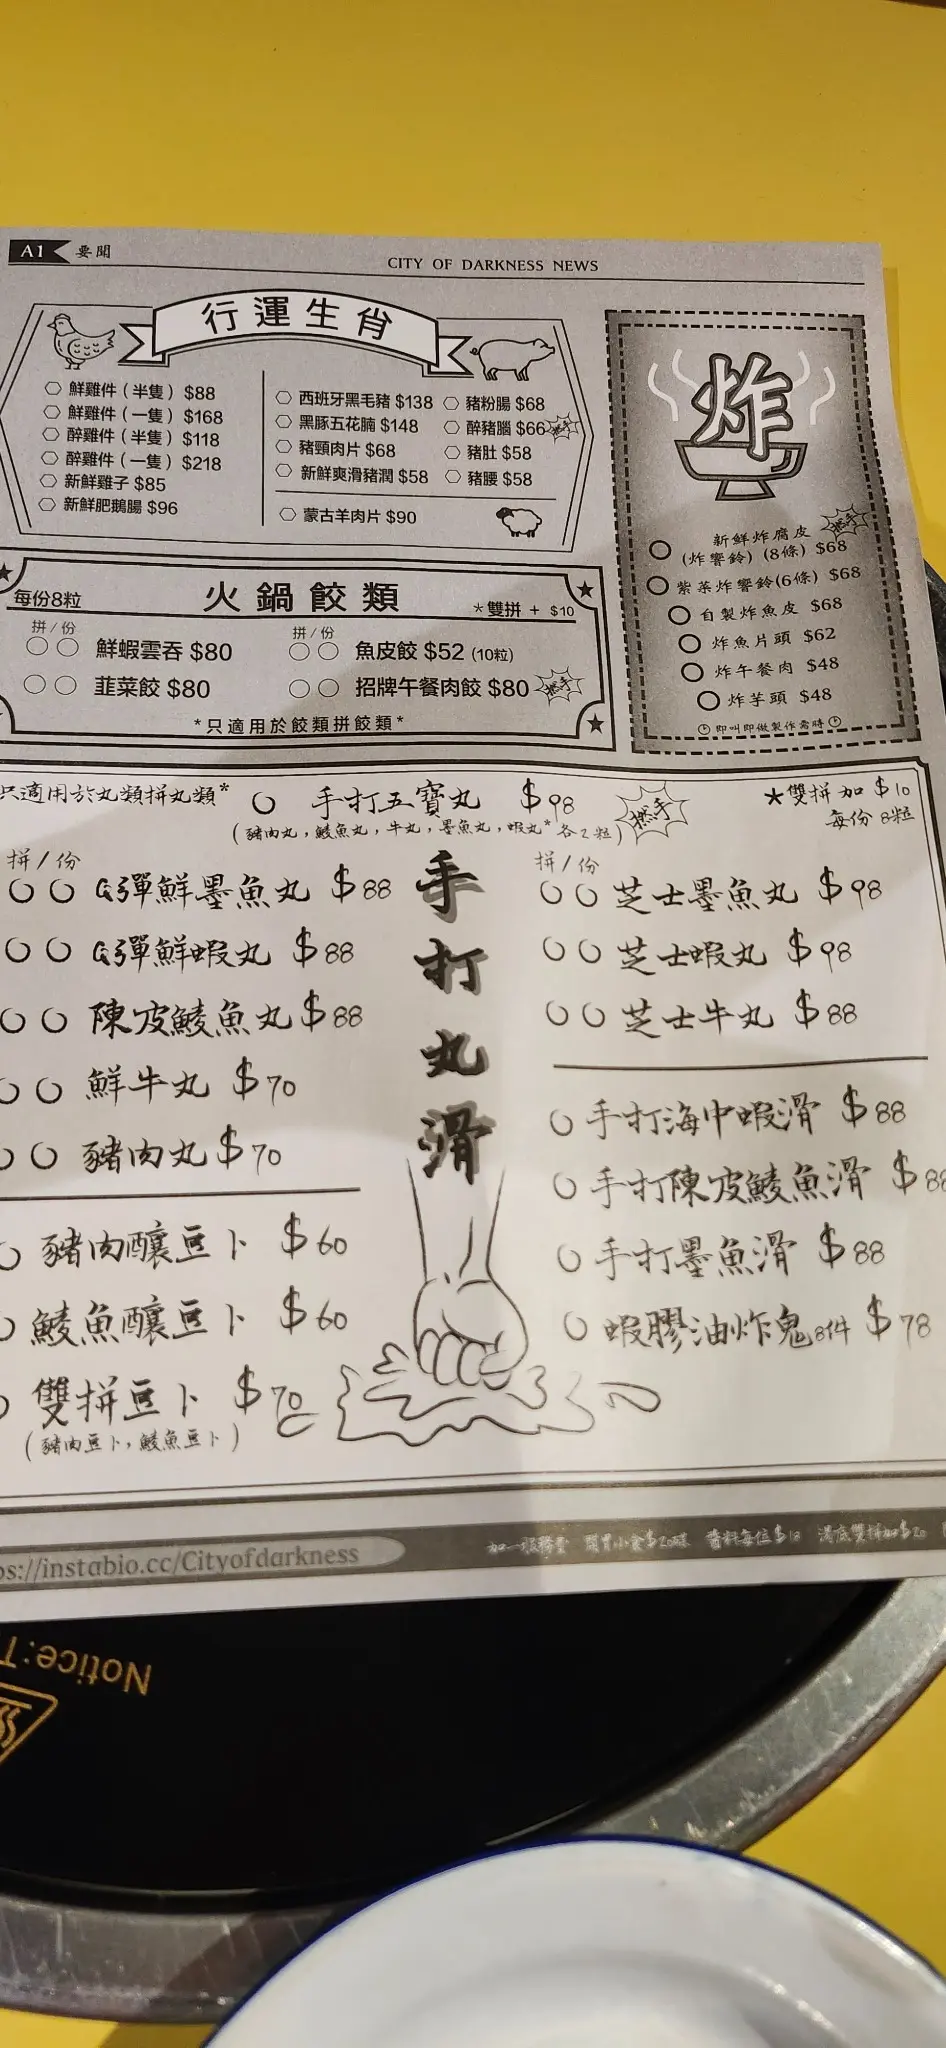 A1 要聞
CITY OF DARKNESS NEWS
行運生肖
鮮雞件（半隻）$88
鮮雞件（一隻）$168
醉雞件（半隻）$118
醉雞件（一隻）$218
新鮮雞子 $85
新鮮肥鵝腸 $96
西班牙黑毛豬 $138
黑豚五花腩 $148
豬頸肉片 $68
新鮮爽滑豬潤 $58
豬粉腸 $68
醉豬腦 $66
豬肚 $58
豬腰 $58
蒙古羊肉片 $90
炸
新鮮炸腐皮
(炸響鈴) (8條) $68
紫菜炸響鈴(6條) $68
自製炸魚皮 $68
炸魚片頭 $62
炸午餐肉 $48
炸芋頭 $48
即叫即做製作需時
每份8粒
火鍋餃類
*雙拼 + $10
拼/份
鮮蝦雲吞 $80
韮菜餃 $80
拼/份
魚皮餃 $52 (10粒)
招牌午餐肉餃 $80
*只適用於餃類拼餃類*
只適用於丸類拼丸類*
手打五寶丸 $98
(豬肉丸，鯪魚丸，牛丸，墨魚丸，蝦丸* 各2粒)
★雙拼加 $10
每份 8粒
手打丸滑
拼/份
Q彈鮮墨魚丸 $88
Q彈鮮蝦丸 $88
陳皮鯪魚丸 $88
鮮牛丸 $70
豬肉丸 $70
豬肉釀豆卜 $60
鯪魚釀豆卜 $60
雙拼豆卜 $70
(豬肉豆卜，鯪魚豆卜)
拼/份
芝士墨魚丸 $98
芝士蝦丸 $98
芝士牛丸 $88
手打海中蝦滑 $88
手打陳皮鯪魚滑 $88
手打墨魚滑 $88
蝦膠油炸鬼8件 $78
ps://instabio.cc/Cityofdarkness
加一服務費 醬料每位$10 湯底雙拼加$20
Notice:T